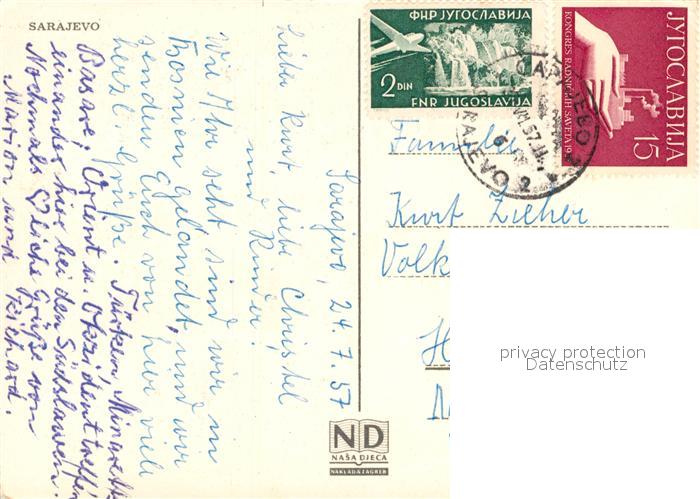 SARAJEVO
Sarajevo, 24.7.57
Lieber Kurt, liebe Christel
und Kinder!
Wie Ihr seht sind wir in
Bosnien gelandet, und wir
senden Euch von hier viele
herzl. Grüße. Türken, Minarette
Basare, Orient u. Okzident treffen
einander hier bei den Südslawen.
Nochmals herzliche Grüße von
Marion und Richard.
ФНР ЈУГОСЛАВИЈА
2 DIN
FNR JUGOSLAVIJA
ЈУГОСЛАВИЈА
KONGRES RADNIČKIH SAVETA 19
15
САРАЈЕВО
SARAJEVO
2
Familie
Kurt Zieher
Volk
H
privacy protection
Datenschutz
ND
NAŠA DJECA
NAKLADA ZAGREB